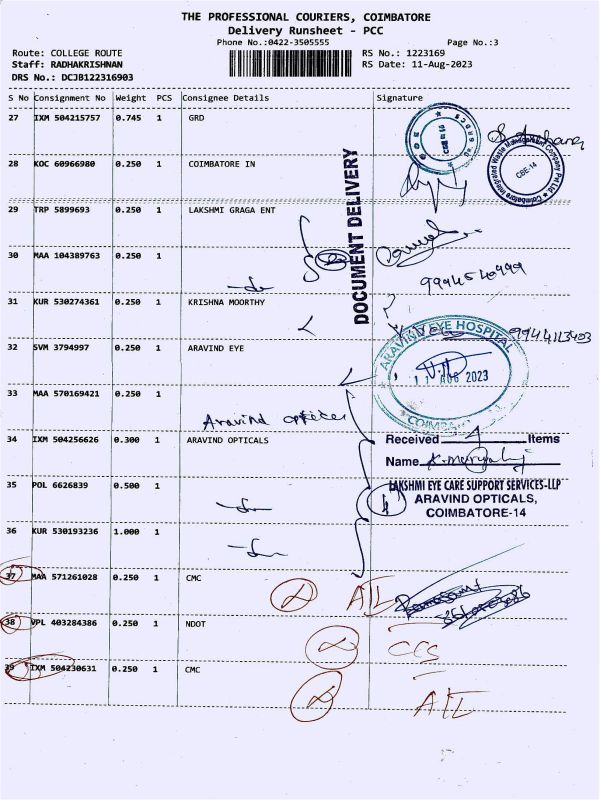 THE PROFESSIONAL COURIERS, COIMBATORE
Delivery Runsheet - PCC
Phone No.:0422-3505555
Page No.:3
Route: COLLEGE ROUTE
RS No.: 1223169
Staff: RADHAKRISHNAN
RS Date: 11-Aug-2023
DRS No.: DCJB122316903
S No Consignment No Weight PCS Consignee Details Signature
27 IXM 504215757 0.745 1 GRD
28 KOC 60966980 0.250 1 COIMBATORE IN
Coimbatore Integrated Waste Management Company Pvt Ltd
CBE-14
DOCUMENT DELIVERY
29 TRP 5899693 0.250 1 LAKSHMI GRAGA ENT
30 MAA 104389763 0.250 1
9994540999
31 KUR 530274361 0.250 1 KRISHNA MOORTHY
9944113403
32 SVM 3794997 0.250 1 ARAVIND EYE
ARAVIND EYE HOSPITAL
11 AUG 2023
33 MAA 570169421 0.250 1
Aravind
34 IXM 504256626 0.300 1 ARAVIND OPTICALS
Received 4 Items
Name
35 POL 6626839 0.500 1
LAKSHMI EYE CARE SUPPORT SERVICES-LLP
ARAVIND OPTICALS,
COIMBATORE-14
36 KUR 530193236 1.000 1
37 MAA 571261028 0.250 1 CMC
38 VPL 403284386 0.250 1 NDOT
39 IXM 504230631 0.250 1 CMC